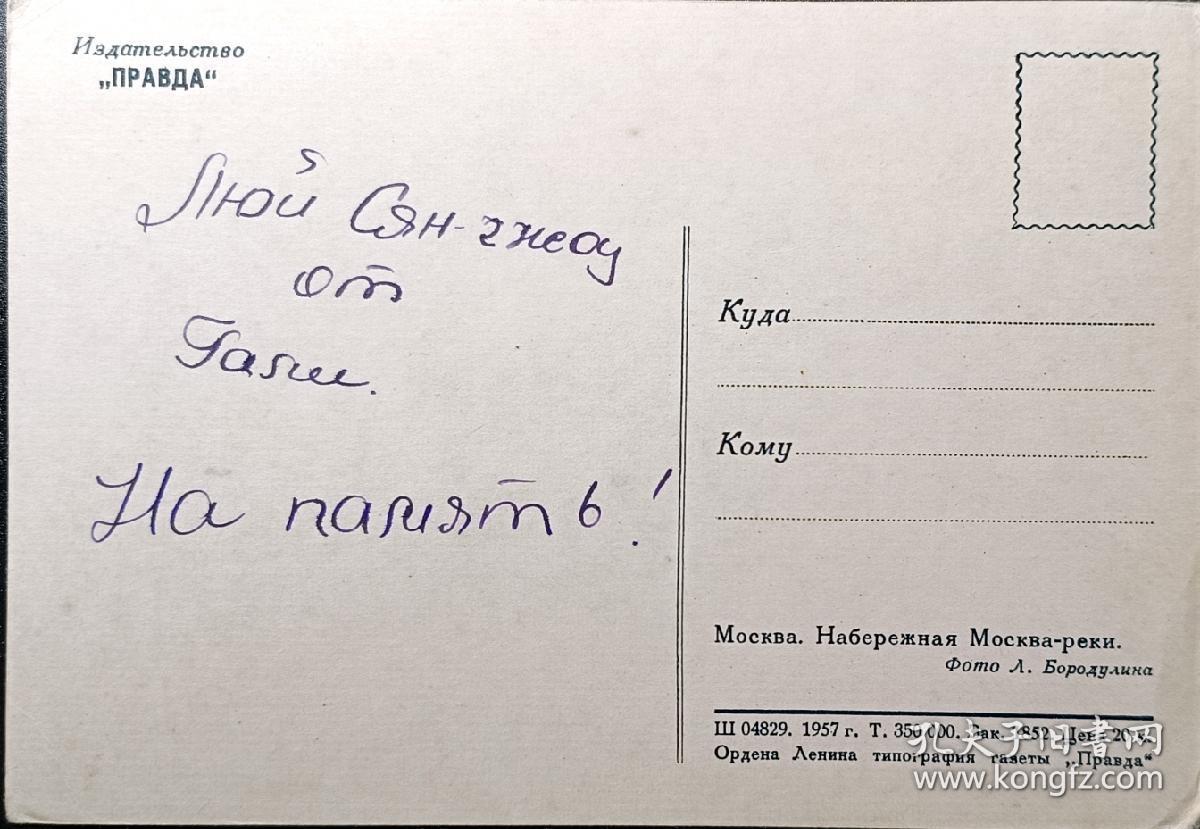 Издательство
„ПРАВДА“
Люй Сян-чжоу
от
Гали.
На память!
Куда
Кому
Москва. Набережная Москва-реки.
Фото Л. Бородулина
Ш 04829. 1957 г. Т. 350 000. Зак. 1852. Цена 20 к.
Ордена Ленина типография газеты „Правда“
孔夫子旧书网
www.kongfz.com